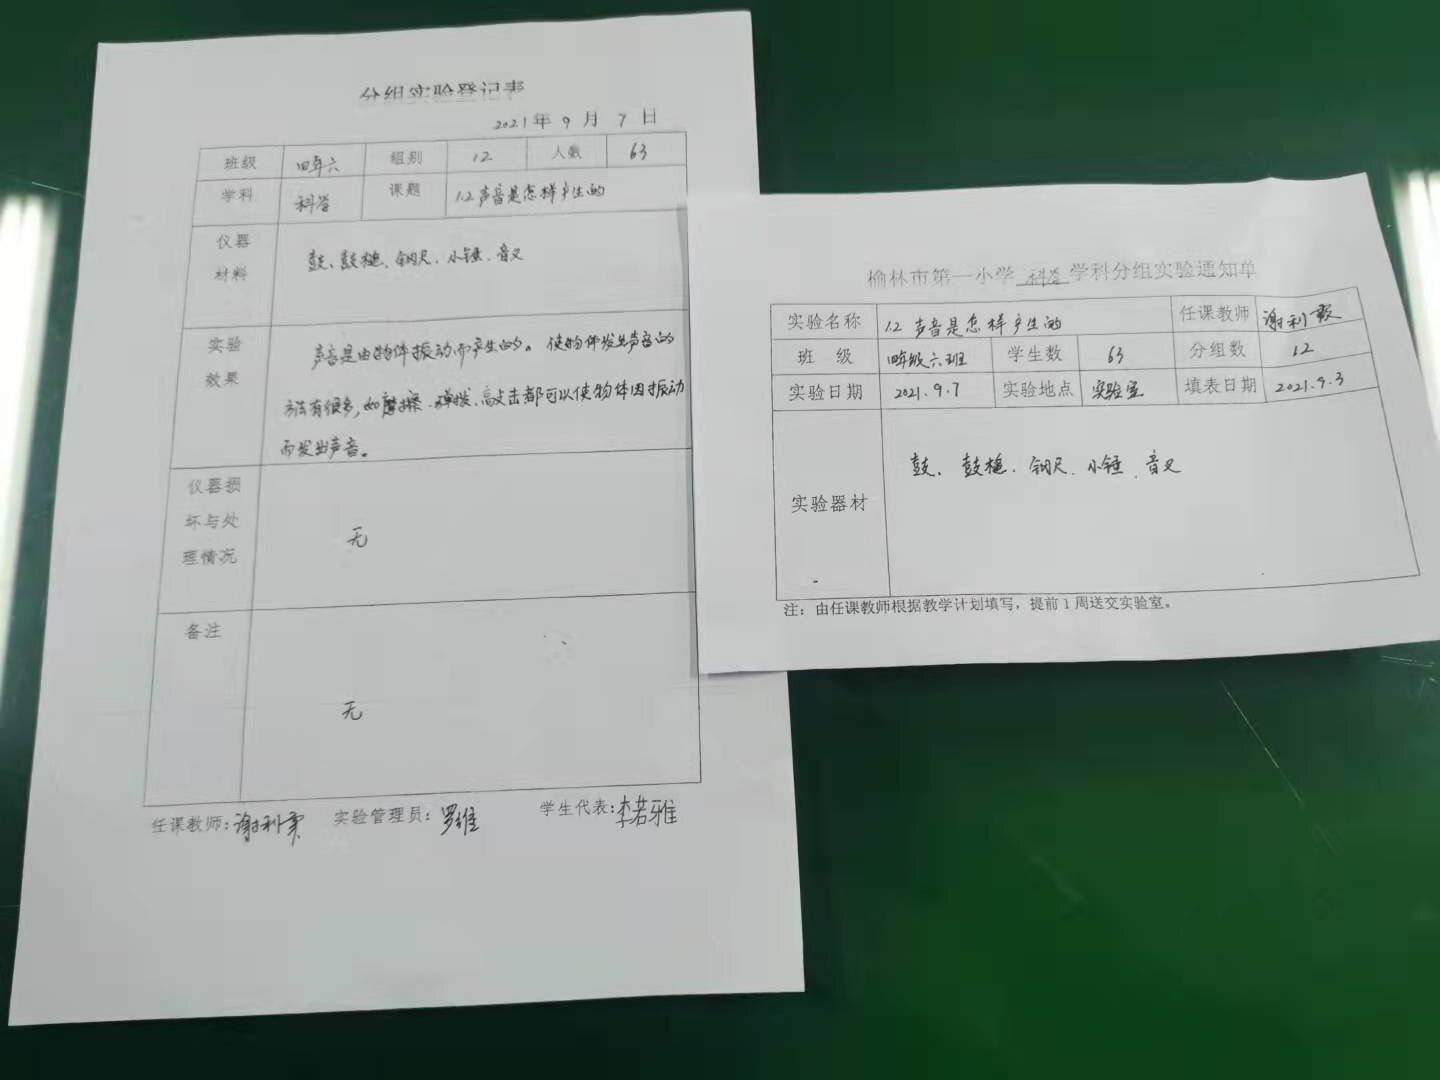 分组实验登记表
2021年 9 月 7 日
班级 四年六 组别 12 人数 63
学科 科学 课题 1.2 声音是怎样产生的
仪器
材料
鼓、鼓槌、钢尺、小锤、音叉
实验
效果
声音是由物体振动而产生的。使物体发出声音的
方法有很多,如摩擦、弹拨、敲击都可以使物体因振动
而发出声音。
仪器损
坏与处
理情况
无
备注
无
任课教师:谢利 实验管理员:罗维 学生代表:李若雅
榆林市第一小学 科学 学科分组实验通知单
实验名称 1.2 声音是怎样产生的 任课教师 谢利
班 级 四年级六班 学生数 63 分组数 12
实验日期 2021.9.7 实验地点 实验室 填表日期 2021.9.3
实验器材 鼓、鼓槌、钢尺、小锤、音叉
注:由任课教师根据教学计划填写,提前1周送交实验室。